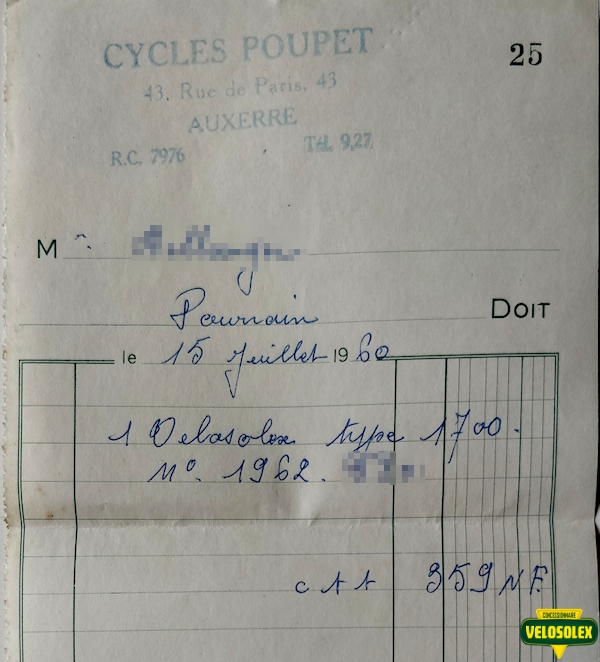 CYCLES POUPET
25
43, Rue de Paris, 43
AUXERRE
R.C. 7976
Tél. 9,27
M
Pourrain
DOIT
le 15 Juillet 1960
1 Velosolex type 1700.
N°. 1962.
c t t 359 N F.
CONCESSIONNAIRE
VELOSOLEX